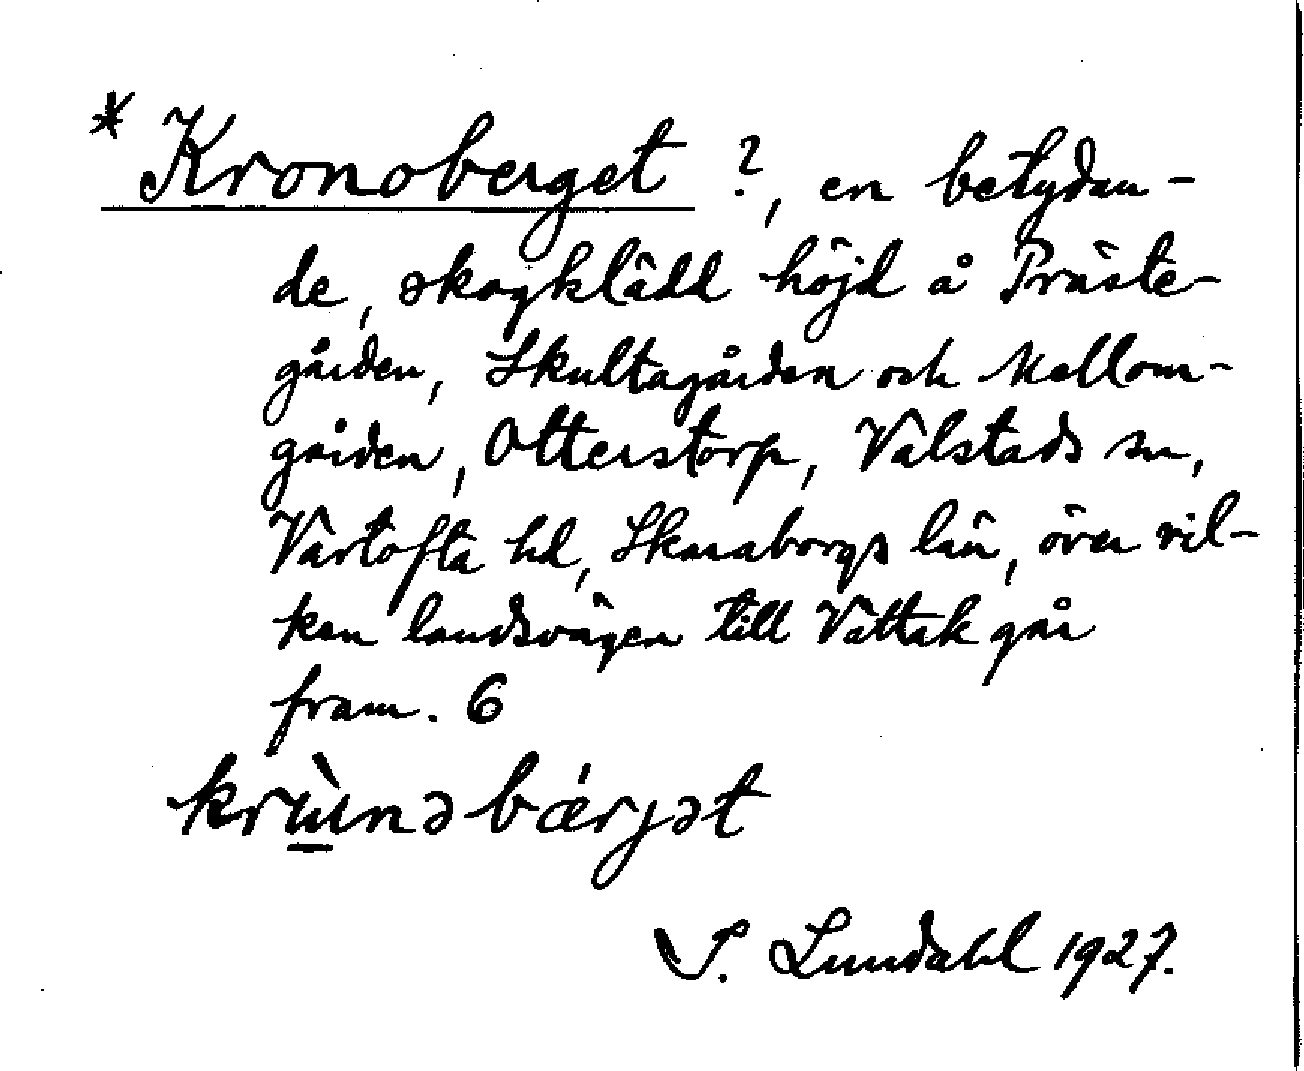 * Kronoberget ?, en betydan-
de, skogklädd höjd å Präste-
gården, Skultagården och Mellom-
gården, Otterstorp, Vålstads sn,
Vartofta hd, Skaraborgs län, över vil-
ken landsvägen till Vättak går
fram. 6
krɯ̀nəbǽrjət
I. Lundahl 1927.